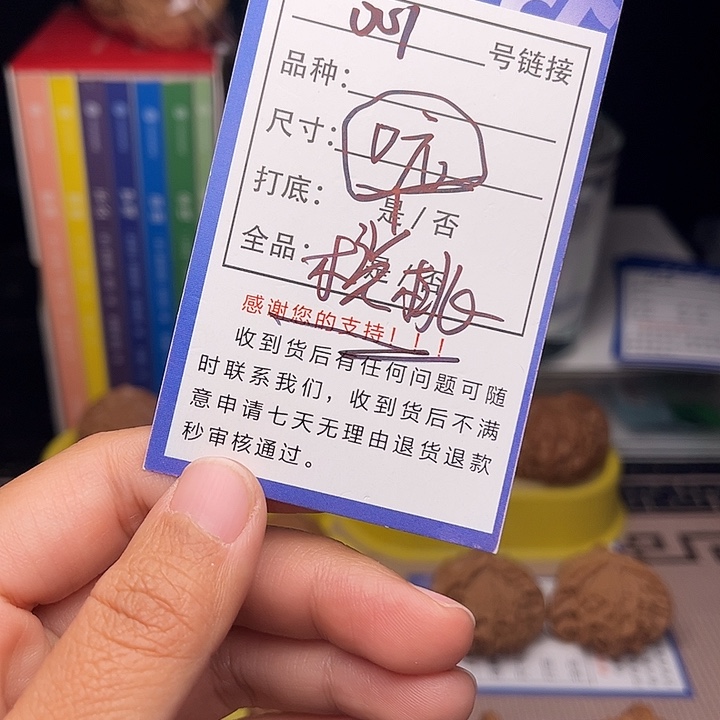 号链接
品种：
尺寸：
打底： 是 / 否
全品：
感谢您的支持！！！
收到货后有任何问题可随
时联系我们，收到货后不满
意申请七天无理由退货退款
秒审核通过。